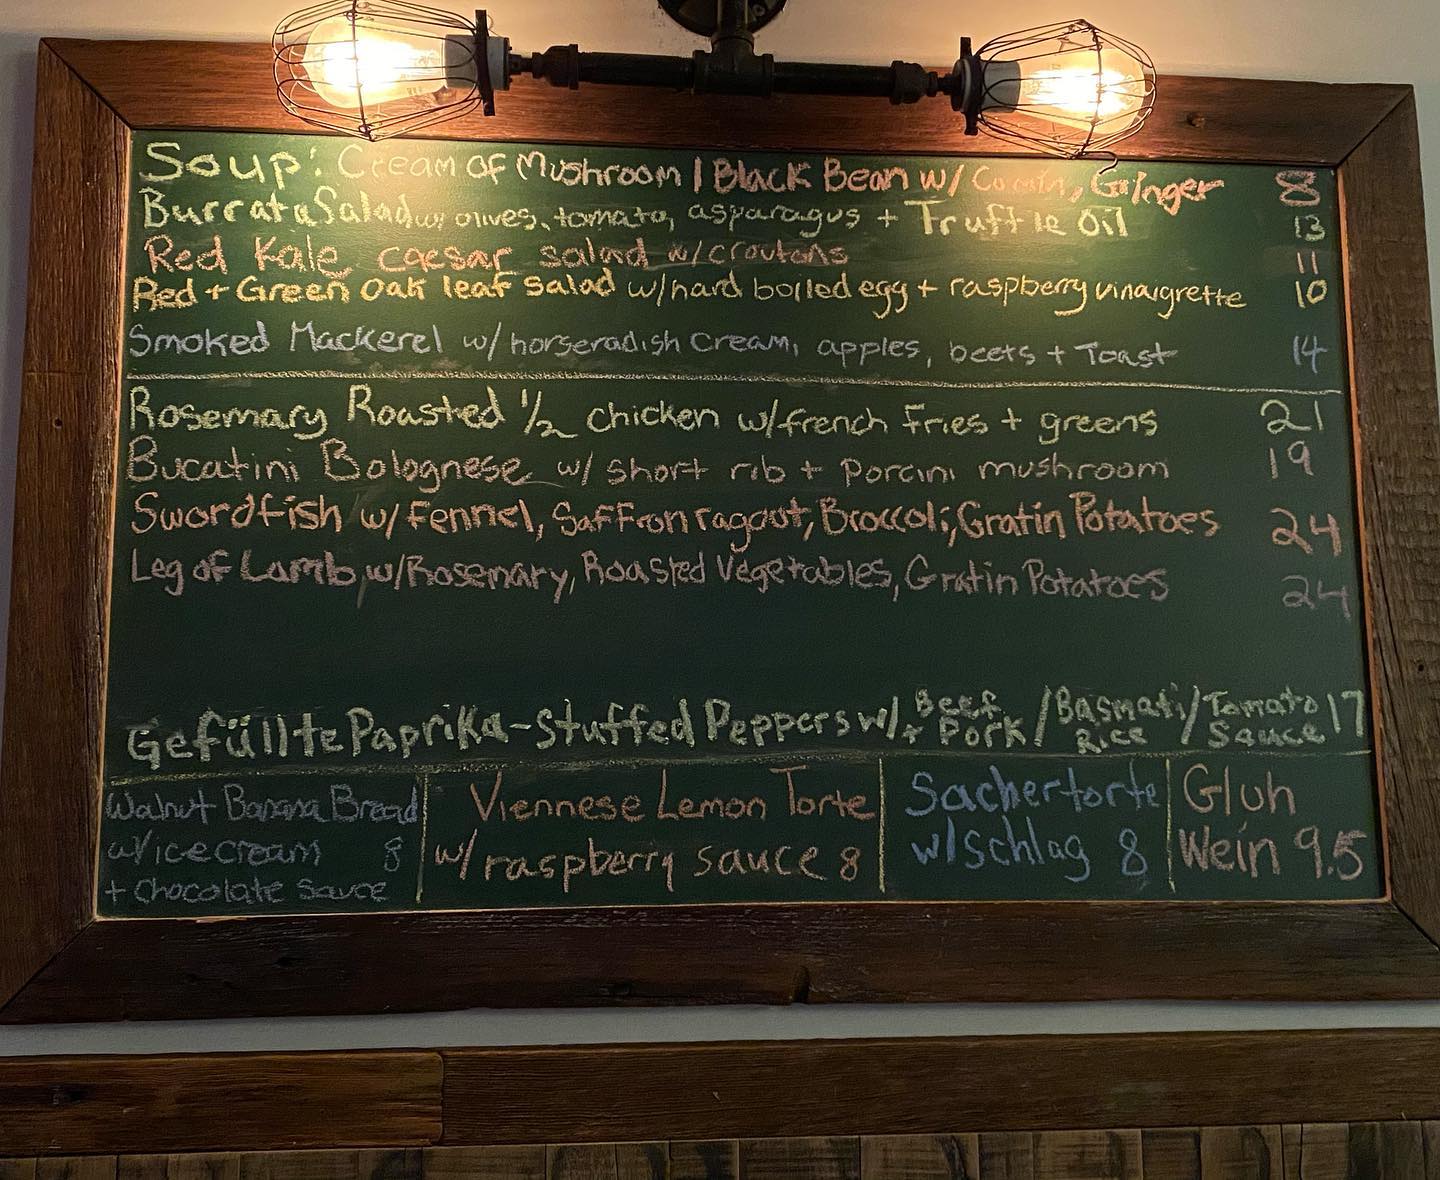 Soup: Cream of Mushroom / Black Bean w/ Cumin, Ginger 8
Burrata Salad w/ olives, tomato, asparagus + Truffle Oil 13
Red Kale caesar salad w/croutons 11
Red + Green Oak leaf salad w/hard boiled egg + raspberry vinaigrette 10
Smoked Mackerel w/ horseradish Cream, apples, beets + Toast 14
Rosemary Roasted 1/2 chicken w/french fries + greens 21
Bucatini Bolognese w/ short rib + porcini mushroom 19
Swordfish w/ Fennel, Saffron ragout, Broccoli, Gratin Potatoes 24
Leg of Lamb w/Rosemary, Roasted Vegetables, Gratin Potatoes 24
Gefüllte Paprika-Stuffed Peppers w/ Beef + Pork / Basmati Rice / Tomato Sauce 17
Walnut Banana Bread
w/ice cream 8
+ Chocolate Sauce
Viennese Lemon Torte
w/ raspberry sauce 8
Sachertorte
w/Schlag 8
Gluh
Wein 9.5